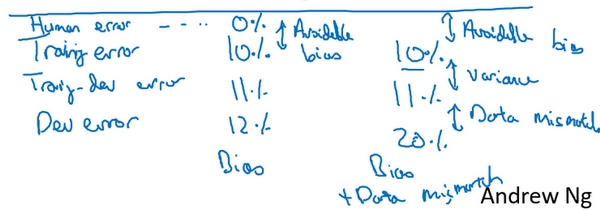 Human error ---- 0% Avoidable bias Avoidable bias
Training error 10% 10%
variance
Training-dev error 11% 11%
Data mismatch
Dev error 12% 20%
Bias Bias
+ Data mismatch
Andrew Ng